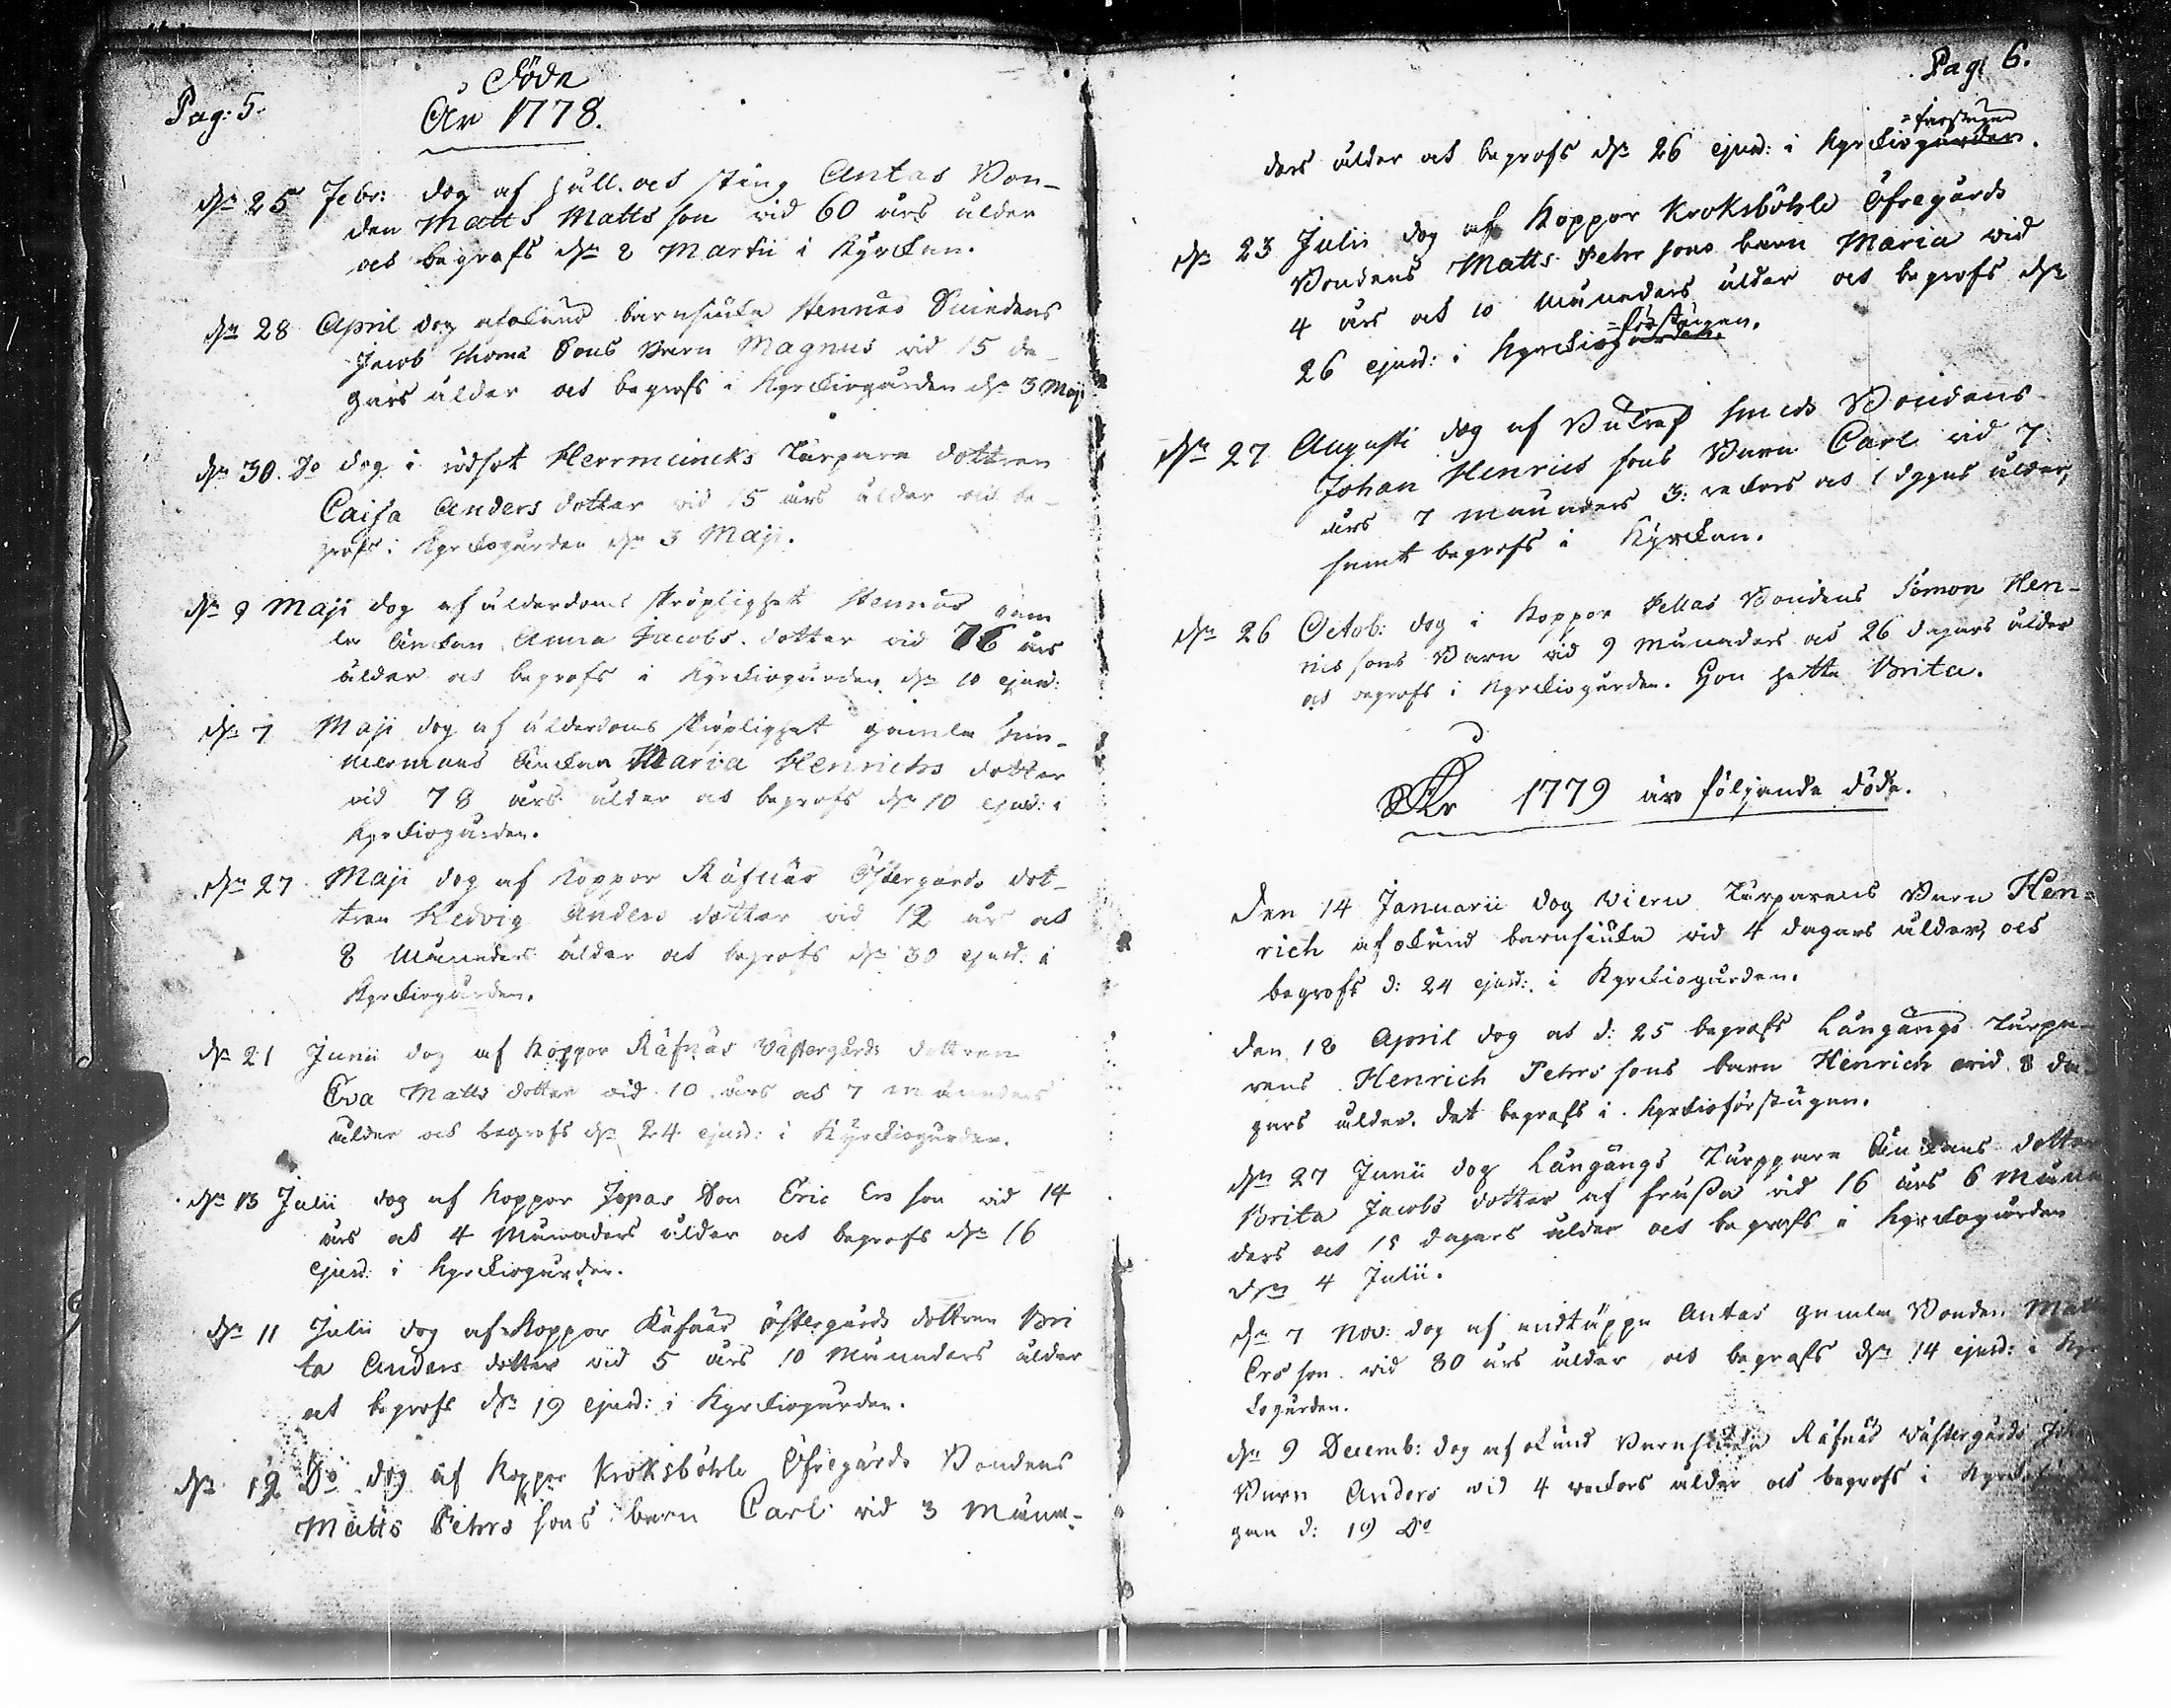 Pag: 5.
Döde
År 1778.
dn 25 Febr: dog af håll. och sting Antas Bon-
den Matts Matts son vid 60 års ålder
och begrofs dn 8 Martii i Kyrckan.
dn 28 April dog af okänd barnsiuka Hennäs
Jacob Thomæ Sons Barn Magnus vid 15 da-
gars ålder och begrofs i Kyrckiogården dn 3 Maji
dn 30. Do dog i rödsot Herrmuncks Torpare dottren
Caisa Anders dotter vid 5 års ålder och be-
grofs i Kyrckogården dn 3 Maji.
dn 9 Maji dog af ålderdoms skröplighet Hennäs gam
la Änckan Anna Jacobs dotter vid 76 års
ålder och begrofs i Kyrckiogården dn 10 ejusd:
dn 7 Maji dog af ålderdoms skröplighet gamla Tim-
mermans Änckan Maria Henrichs dotter
vid 78 års ålder och begrofs dn 10 ejusd: i
Kyrckiogården.
dn 27 Maji dog af Koppor Räfnäs Östergårds dot-
tren Hedvig Anders dotter vid 12 års och
8 Månaders ålder och begrofs dn 30 ejusd: i
Kyrckiogården.
dn 21 Junii dog af Koppor Räfnäs Västergårds dottren
Eva Matts dotter vid 10 års och 7 månaders
ålder och begrofs dn 24 ejusd: i Kyrckiogården.
dn 13 Julii dog af Koppor Jopas Son Eric Ers son vid 14
års och 4 Månaders ålder och begrofs dn 16
ejusd: i Kyrckiogården.
dn 11 Julii dog af Koppor Räfnäs Östergårds dottren Bri
ta Anders dotter vid 5 års 10 Månaders ålder
och begrofs dn 19 ejusd: i Kyrckiogården.
dn 12 Do dog af Koppor Kroksböhle Öfregårds Bondens
Matts Pehrs sons barn Carl vid 3 Måna-
Pag: 6.
=förstugan
ders ålder och begrofs dn 26 ejusd: i Kyrckiogården.
dn 23 Julii dog af Koppor Kroksböhle Öfregårds
Bondens Matts Pehrs sons barn Maria vid
4 års och 10 Månaders ålder och begrofs dn
=förstugan.
26 ejusd: i Kyrckiogården.
dn 27 Augusti dog af Bondens
Johan Henrics sons Barn Carl vid 7
års 7 månaders 3: veckors och 1 dags ålder,
samt begrofs i Kyrckan.
dn 26 Octob: dog i Koppor Pellas Bondens Simon Hen-
rics sons Barn vid 9 månaders och 26 dagars ålder
och begrofs i Kyrckiogården. Hon hette Brita.
År 1779 äro följande döde.
Den 14 Januarii dog Torparens Barn Hen=
rich af okänd barnsiuka vid 4 dagars ålder, och
begrofs d: 24 ejusd: i Kyrckiogården.
den 18 April dog och d: 25 begrofs Långängs Torpa-
rens Henrich Pehrs sons barn Henrich vid 8 da-
gars ålder. det begrofs i Kyrckioförstugan.
dn 27 Junii dog Långängs Torppare Änckans dotter
Brita Jacobs dotter af frussa vid 16 års 6 Måna
ders och 15 dagars ålder och begrofs i Kyrckogården
dn 4 Julii.
dn 7 Nov: dog af andtäppa Antas gamla Bonden Matts
Ers son vid 80 års ålder och begrofs dn 14 ejusd: i Kyr
kogården.
dn 9 Decemb: dog af okänd Barnsiuka Räfnäs Västergårds
Barn Anders vid 4 veckors ålder och begrofs i
gan d: 19 Do